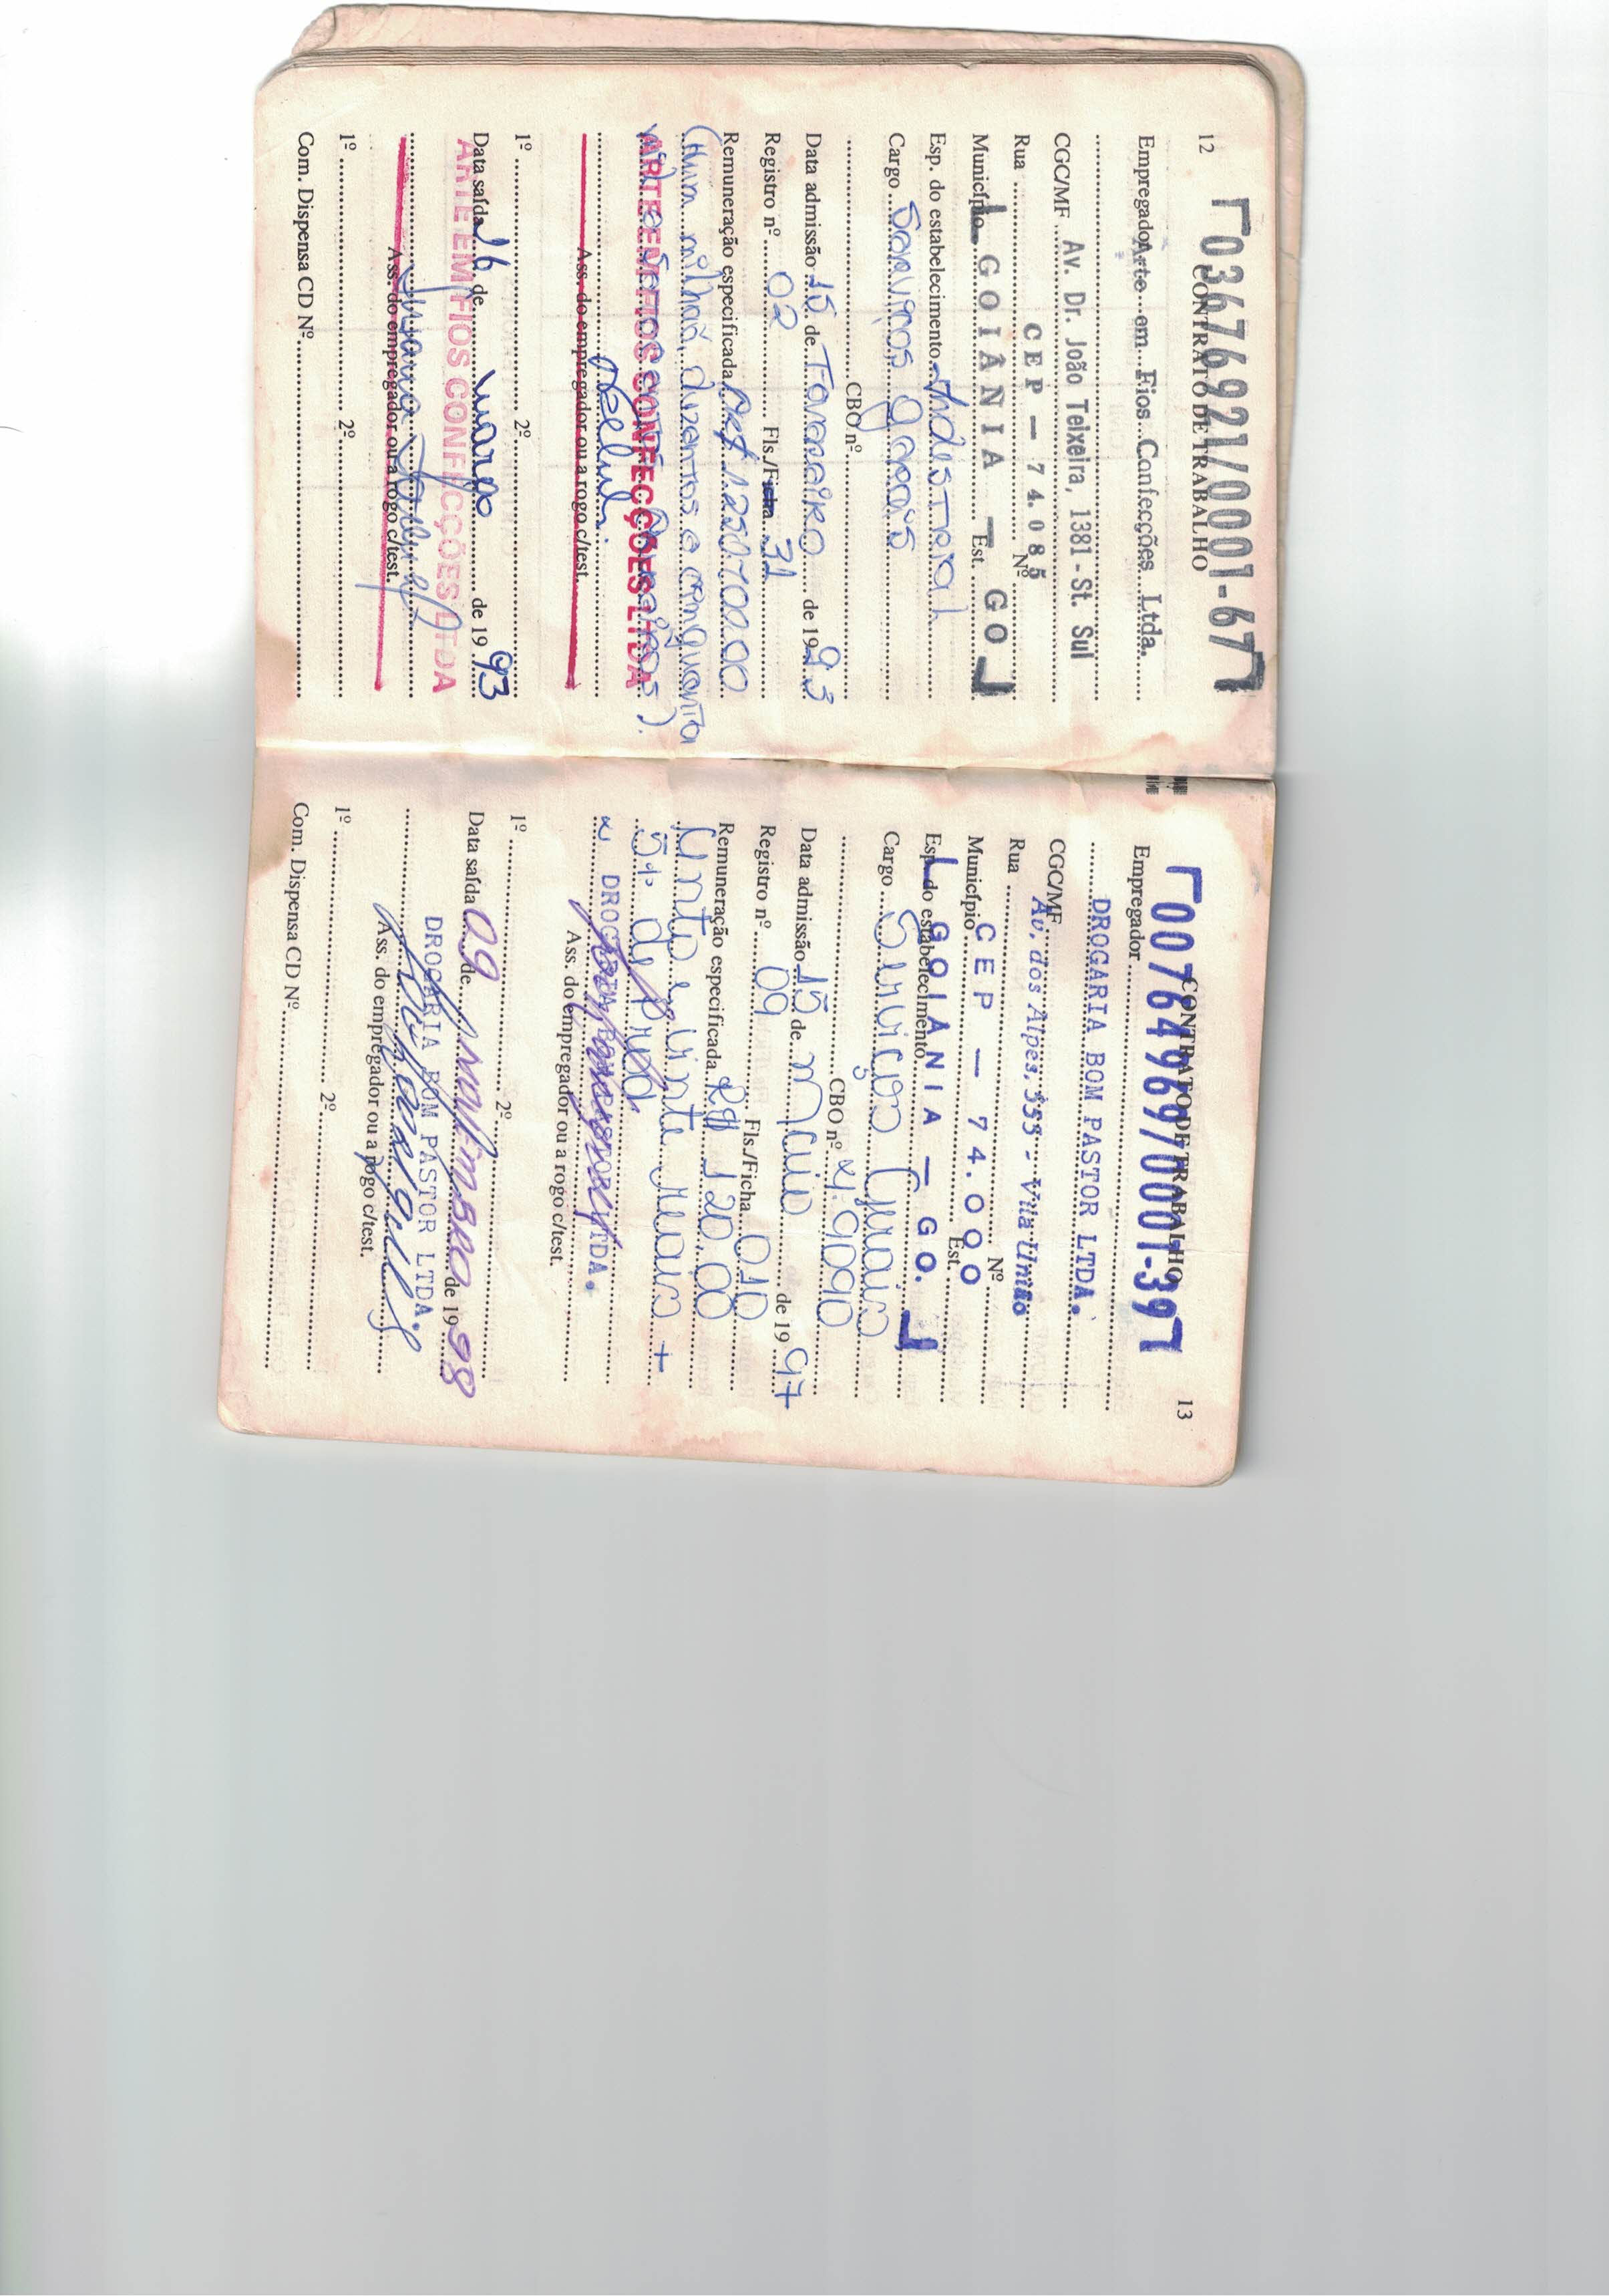 12
03676921/0001-67
CONTRATO DE TRABALHO
Empregador Arte em Fios Confecções Ltda.
CGC/MF Av. Dr. João Teixeira, 1381 - St. Sul
Rua Nº
CEP - 74.085
Município Est.
GOIÂNIA - GO
Esp. do estabelecimento Indústrial
Cargo Serviços gerais
CBO nº
Data admissão 15 de Fevereiro de 1993
Registro nº 02 Fls./Ficha 31
Remuneração especificada Cr$ 1.250.700.00
(Hum milhão, duzentos e cinquenta
mil e setecentos cruzeiros).
ARTE EM FIOS CONFECÇÕES LTDA
Ass. do empregador ou a rogo c/test.
1º 2º
Data saída 16 de março de 1993
ARTE EM FIOS CONFECÇÕES LTDA
Ass. do empregador ou a rogo c/test.
1º 2º
Com. Dispensa CD Nº
13
CONTRATO DE TRABALHO
00764969/0001-39
Empregador
DROGARIA BOM PASTOR LTDA.
CGC/MF
Av. dos Alpes, 355 - Vila União
Rua Nº
CEP - 74.000
Município Est.
GOIANIA - GO.
Esp. do estabelecimento
Cargo Serviços Gerais
CBO nº 4.9090
Data admissão 15 de Maio de 1997
Registro nº 09 Fls./Ficha 010
Remuneração especificada R$ 120,00
Cento e vinte reais +
5% de Prod
DROGARIA BOM PASTOR LTDA.
Ass. do empregador ou a rogo c/test.
1º 2º
Data saída 09 de novembro de 1998
DROGARIA BOM PASTOR LTDA.
Ass. do empregador ou a rogo c/test.
1º 2º
Com. Dispensa CD Nº